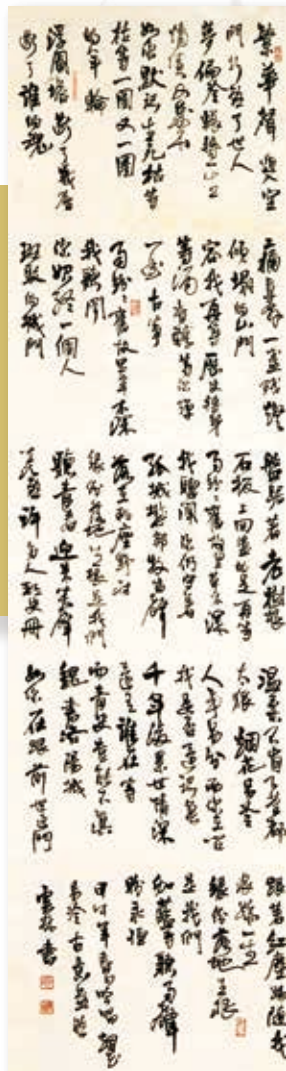 繁華聲遁入空
門折煞了世人
夢偏冷輾轉一生
情債又幾本
如你默認生死枯等
枯等一圈又一圈
的年輪
浮圖塔斷了幾層
斷了誰的魂
痛直奔一盞殘燈
傾塌的山門
容我再等歷史轉身
等酒香醇等你彈
一曲古箏
雨紛紛舊故里草木深
我聽聞
你始終一個人
斑駁的城門
盤踞著老樹根
石板上回蕩的是再等
雨紛紛舊故里草木深
我聽聞你仍守著
孤城城郊牧笛聲
落在那座野村
緣份落地生根是我們
聽青春迎來笑聲
羨煞許多人那史冊
溫柔不肯下筆都
太狠煙花易冷
人事易分而你在問
我是否還認真
千年後累世情深
還有誰在等
而青史豈能不真
魏書洛陽城
如你在跟前世過門
跟著紅塵跟隨我
浪跡一生
緣份落地生根
是我們
伽藍寺聽雨聲
盼永恆